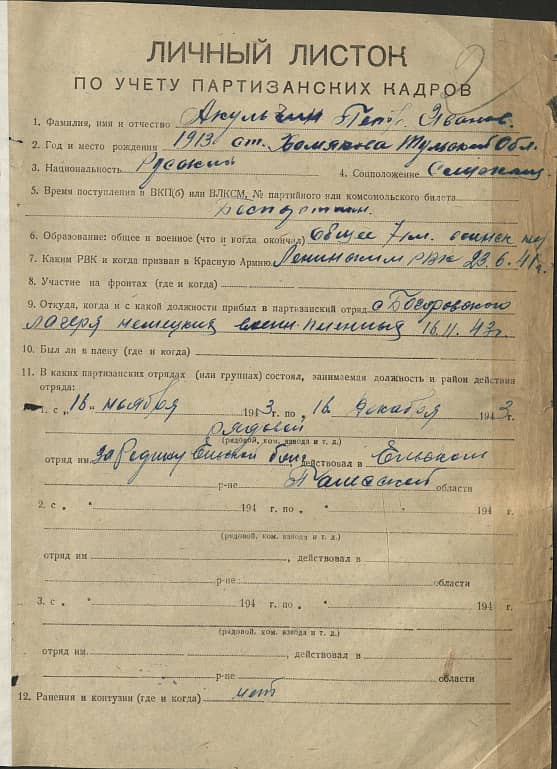 2
ЛИЧНЫЙ ЛИСТОК
ПО УЧЕТУ ПАРТИЗАНСКИХ КАДРОВ
1. Фамилия, имя и отчество Акульчин Петр Иванов.
2. Год и место рождения 1913 ст. Хомякова Тульской Обл.
3. Национальность Русский 4. Соцположение
5. Время поступления в ВКП(б) или ВЛКСМ, № партийного или комсомольского билета
беспартийн.
6. Образование: общее и военное (что и когда окончил) общее 7 кл. воинск
7. Каким РВК и когда призван в Красную Армию Ленинским РВК 23.6.41 г.
8. Участие на фронтах (где и когда)
9. Откуда, когда и с какой должности прибыл в партизанский отряд с
лагеря немецких военнопленных 16.11.43 г.
10. Был ли в плену (где и когда)
11. В каких партизанских отрядах (или группах) состоял, занимаемая должность и район действия
отряда:
1. с „16" ноября 1943 г. по „16 декабря 1943 г.
рядовой
(рядовой, ком. взвода и т. д.)
отряд им. За Родину Ельской бриг, действовал в Ельском
р-не Полесской области
2. с „ " 194 г. по „ " 194 г.
(рядовой, ком. взвода и т. д.)
отряд им. , действовал в
р-не области
3. с „ " 194 г. по „ " 194 г.
(рядовой, ком. взвода и т. д.)
отряд им. , действовал в
р-не области
12. Ранения и контузии (где и когда) нет